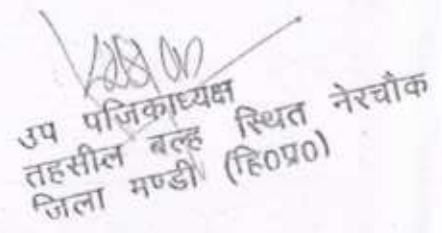 उप पजिकाध्यक्ष
तहसील बल्ह स्थित नेरचौक
जिला मण्डी (हि0प्र0)